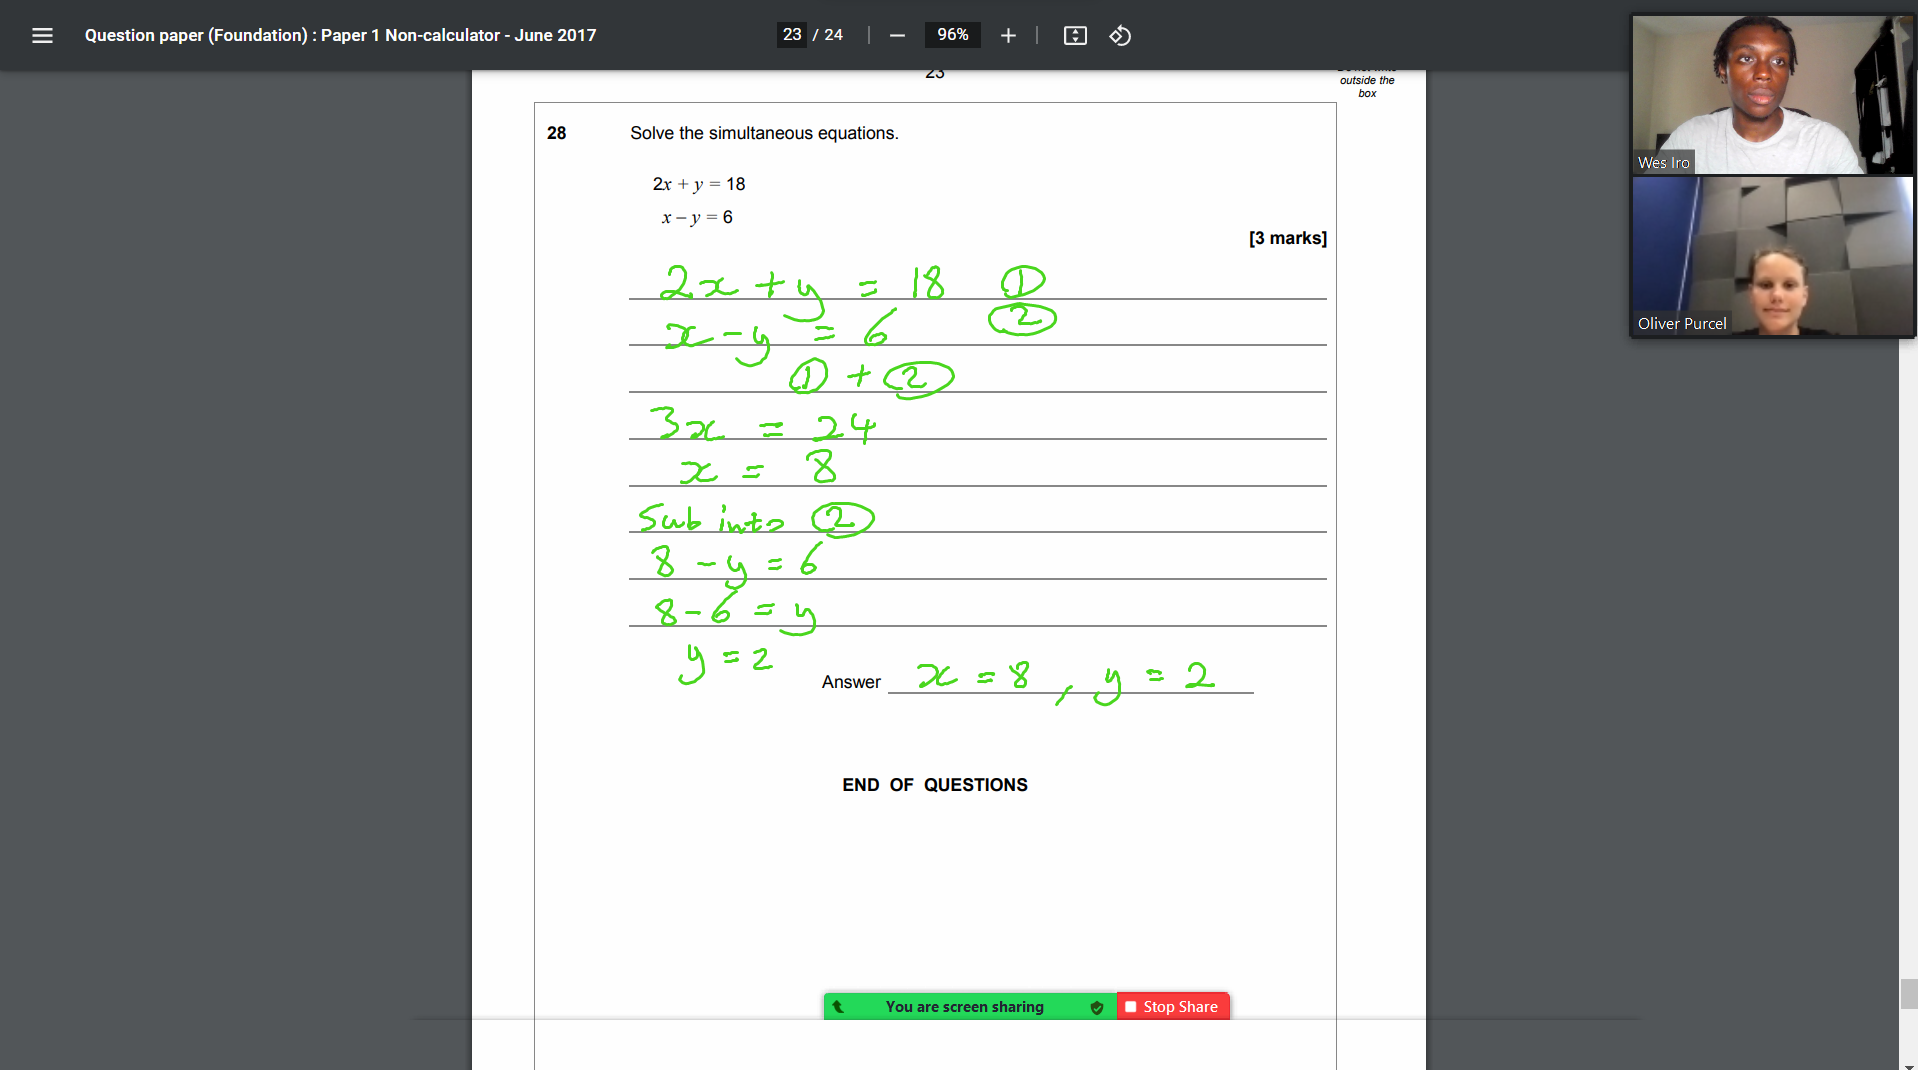 Question paper (Foundation) : Paper 1 Non-calculator - June 2017
23 / 24
96%
23
outside the
box
28 Solve the simultaneous equations.
2x + y = 18
x – y = 6
[3 marks]
2x + y = 18 ①
x - y = 6 ②
① + ②
3x = 24
x = 8
Sub into ②
8 - y = 6
8 - 6 = y
y = 2
Answer x = 8 , y = 2
END OF QUESTIONS
You are screen sharing
Stop Share
Wes Iro
Oliver Purcel